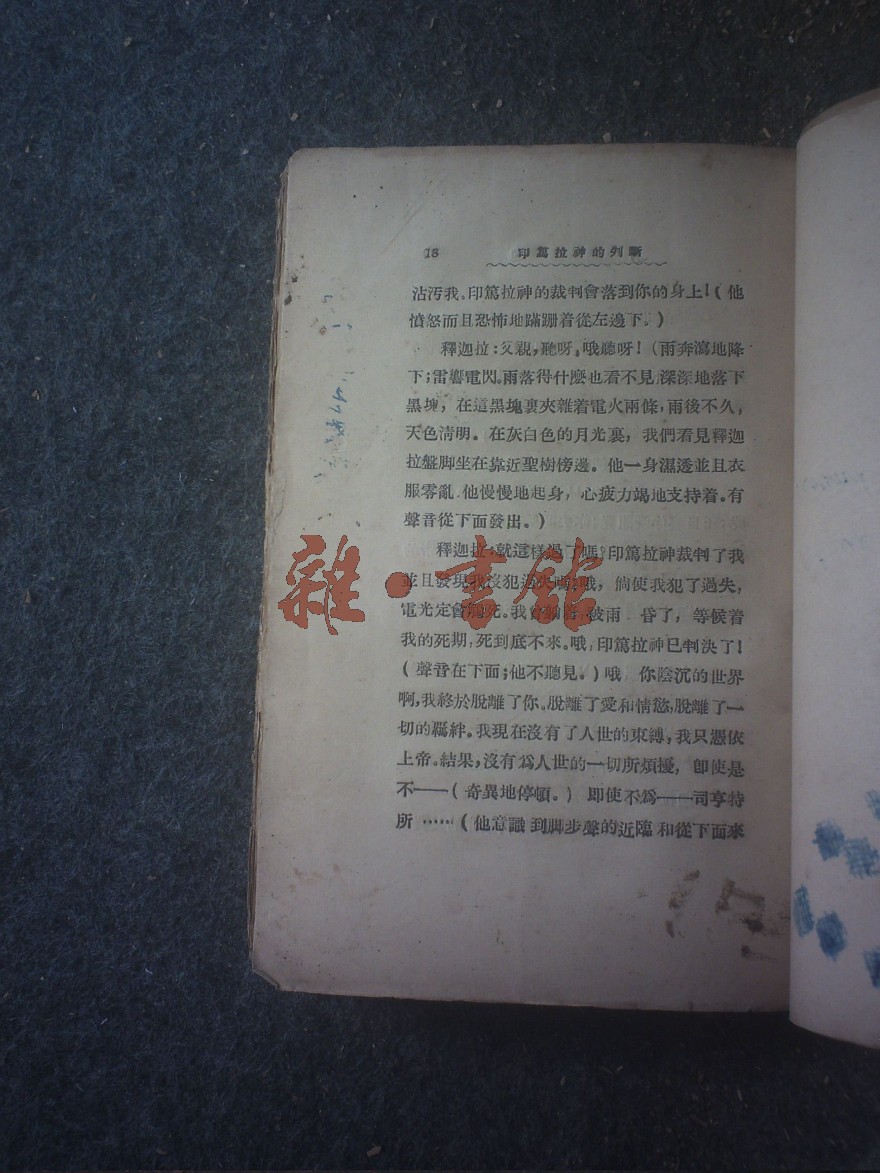 18 印篤拉神的判斷
沾汚我。印篤拉神的裁判會落到你的身上!(他
憤怒而且恐怖地蹣跚着從左邊下。)
釋迦拉:父親,聽呀,哦聽呀!(雨奔瀉地降
下;雷響電閃。雨落得什麼也看不見 深深地落下
黑塊,在這黑塊裏夾雜着電火兩條,雨後不久,
天色淸明。在灰白色的月光裏,我們看見釋迦
拉盤脚坐在靠近聖樹傍邊。他一身濕透並且衣
服零亂.他慢慢地起身,心疲力竭地支持着。有
聲音從下面發出。)
釋迦拉:就這樣過了嗎?印篤拉神裁判了我
並且發現我沒犯過失嗎?哦,倘使我犯了過失,
電光定會 死。我會 着 被雨 昏了,等候着
我的死期,死到底不來。哦,印篤拉神已判決了!
(聲音在下面;他不聽見。)哦 你陰沉的世界
啊,我終於脫離了你。脫離了愛和情慾,脫離了一
切的羈絆。我現在沒有了人世的束縛,我只憑依
上帝。結果,沒有爲人世的一切所煩擾,卽使是
不——(奇異地停頓。) 卽使不爲——司亨特
所 ……(他意識到脚步聲的近臨和從下面來
雜·書館